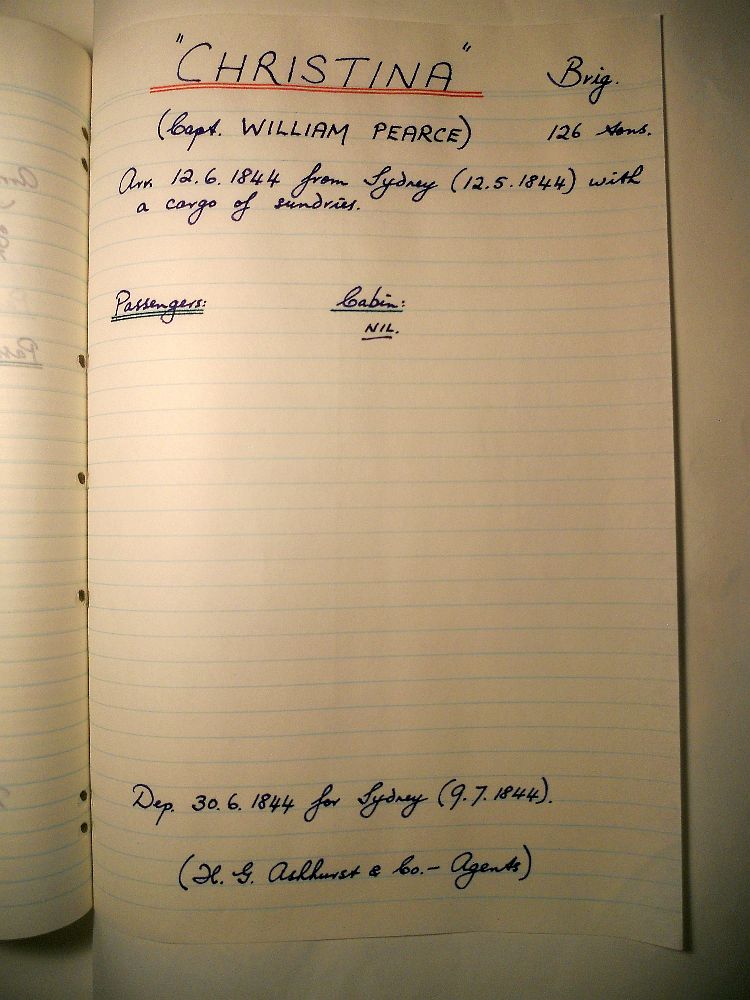 "CHRISTINA" Brig.
(Capt. WILLIAM PEARCE) 126 tons.
Arr. 12.6.1844 from Sydney (12.5.1844) with
a cargo of sundries.
Passengers: Cabin:
NIL.
Dep. 30.6.1844 for Sydney (9.7.1844).
(H. G. Ashhurst & Co. - Agents)